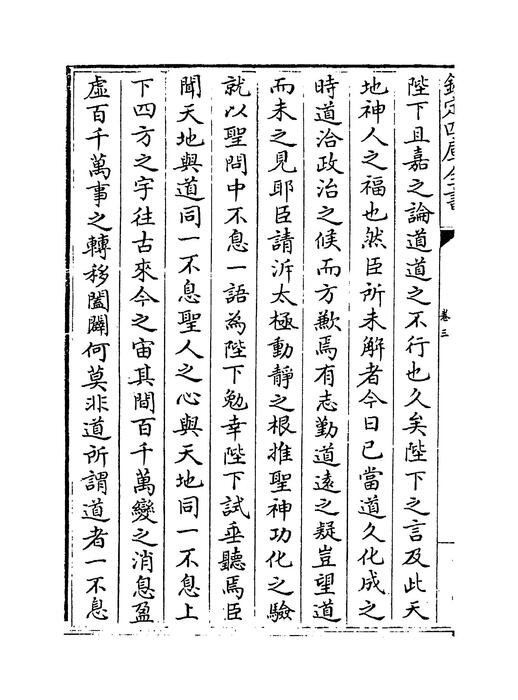 欽定四庫全書
卷三
陛下且嘉之論道道之不行也久矣陛下之言及此天
地神人之福也然臣所未解者今日已當道久化成之
時道洽政治之候而方歉焉有志勤道遠之疑豈望道
而未之見耶臣請泝太極動靜之根推聖神功化之驗
就以聖問中不息一語為陛下勉幸陛下試垂聽焉臣
聞天地與道同一不息聖人之心與天地同一不息上
下四方之宇往古來今之宙其間百千萬變之消息盈
虛百千萬事之轉移闔闢何莫非道所謂道者一不息